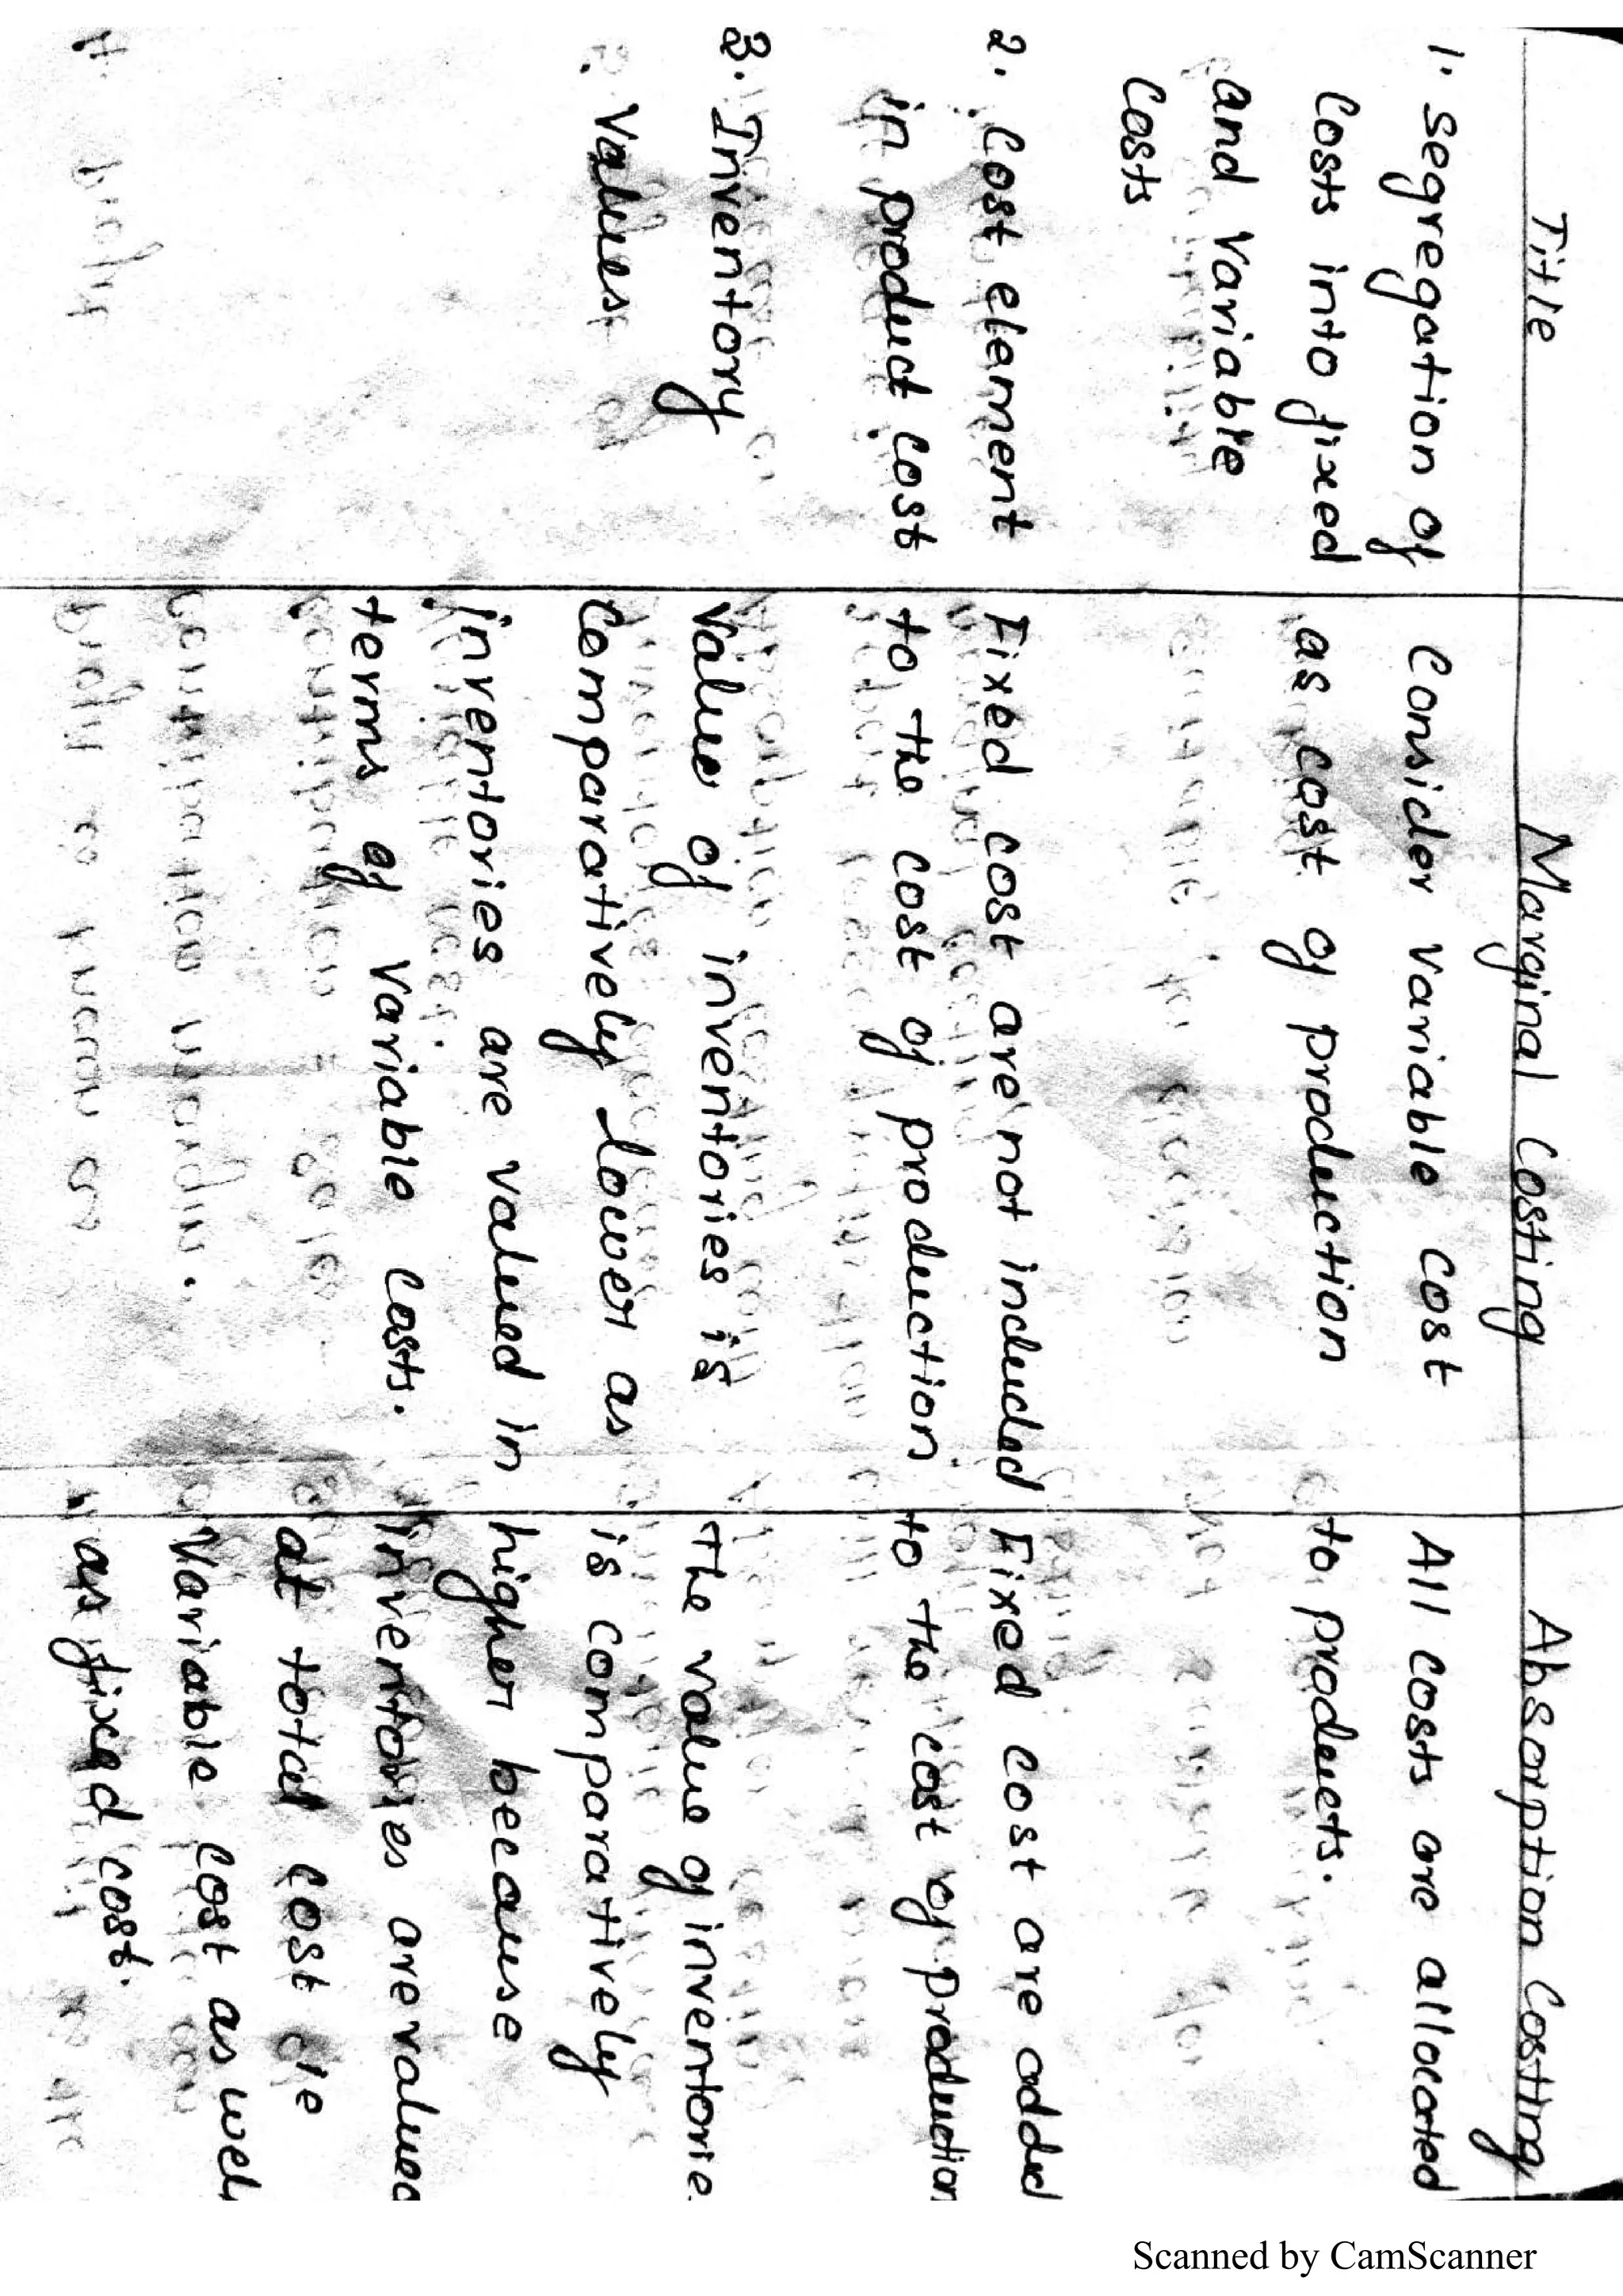 Title
Marginal Costing
Absorption Costing
1. Segregation of
Costs into fixed
and Variable
Costs
Consider Variable Cost
as cost of production
All costs are allocated
to products.
2. Cost element
in product cost
Fixed cost are not included
to the cost of production
Fixed cost are added
to the cost of production
3. Inventory
Values
Value of inventories is
Comparatively lower as
inventories are valued in
terms of Variable Costs.
The value of inventorie
is comparatively
higher because
inventories are valued
at total cost ie
Variable Cost as well
as fixed cost.
Scanned by CamScanner